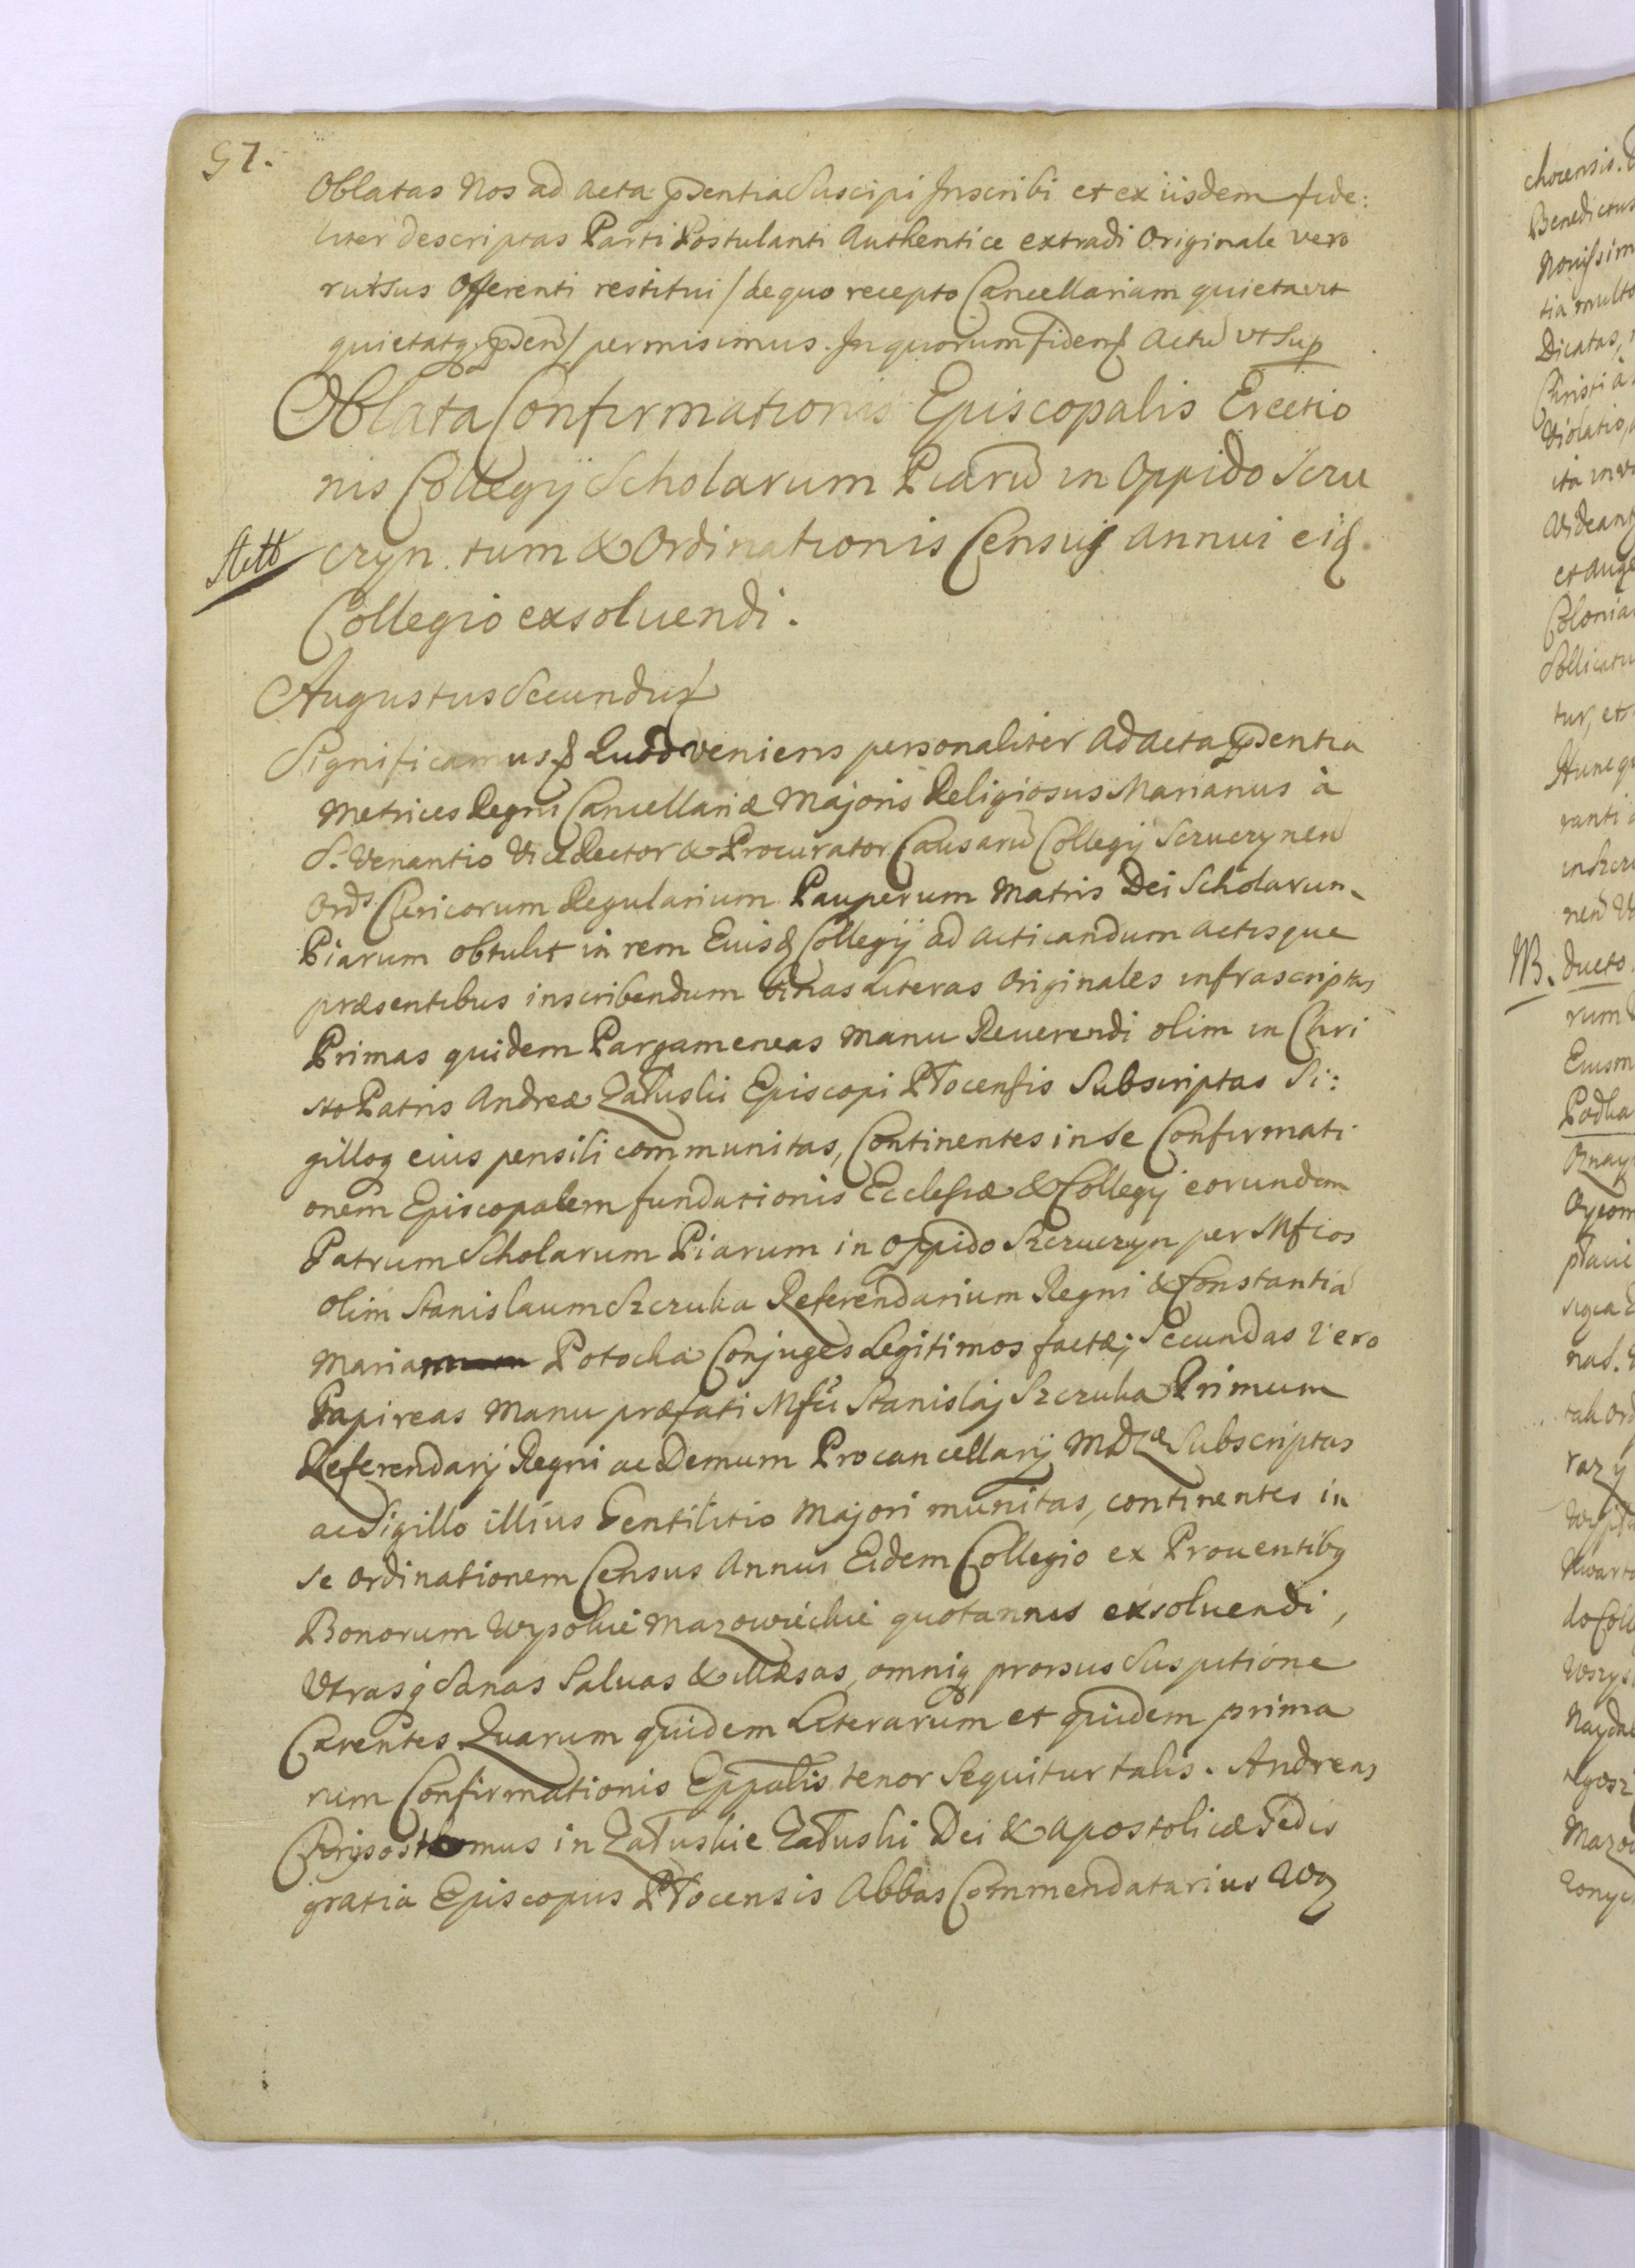 57.
Oblatas Nos ad Acta pńdentia Suscipi Inscribi et ex iisdem fide:
liter descriptas Parti Postulanti Authentice extradi Originale vero
rursus Offerenti restitui / de quo recepto Cancellariam quietavit
quietatq; pńden / permisimus. In quorum fidem Actu ut Sup
Oblata Confirmationis Episcopalis Erectio
nis Collegÿ Scholarum Piarū in Oppido Sczu
czyn. tum & Ordinationis Census Annui eid
Collegio exsoluendi.
Augustus Secundus
Significamus Quod veniens personaliter ad acta pńdentia
Metrices Regni Cancellariæ Majoris Religiosus Marianus à
S. Venantio Vice Rector & Procurator Causarū Collegÿ Sczuczynen
Ords. Clericorum Regularium Pauperum Matris Dei Scholarum
Piarum obtulit in rem Eius Collegÿ ad acticandum actisque
præsentibus inscribendum binas Literas Originales infrascriptas
Primas quidem Pargameneas manu Reuerendi olim in Chri
sto Patris Andreæ Załuski Episcopi Płocensis Subscriptas Si:
gilloq eius pensili communitas, Continentes in se Confirmati
onem Episcopalem fundationis Ecclesiæ & Collegÿ eorundem
Patrum Scholarum Piarum in oppido Szczuczyn per Mficos
olim Stanislaum Szczuka Referendarium Regni & Constantia
Maria Potocka Conjuges Legitimos factæ; Secundas vero
Papireas manu præfati Mfci Stanislaj Szczuka Primum
Referendarÿ Regni ac Demum Procancellarÿ MDLæ Subscriptas
ac Sigillo illius Gentilitio Majori munitas, continentes in
se ordinationem Census Annui Eidem Collegio ex Prouentibq
Bonorum Wysokie Mazowieckie quotannis exsoluendi,
Utrasq Sanas Saluas & illæsas, omniq prorsus Suspitione
Carentes. Quarum quidem Literarum et quidem prima
rum Confirmationis Eppalis tenor Sequitur talis. Andreas
Chrisosthomus in Załuskie Załuski Dei & Apostolicæ Sedis
gratia Episcopus Płocensis Abbas Commendatarius Wą
chocensis.
Benedictus
Nouissim
tia multo
Dicatas,
Christi à
Violatio,
ita in
Videant
et auge
Colonia
Pollicatu
tur, et
Hunc
ganti
in Szczu
nen
NB. ducto
rum
Eiusm
Podla